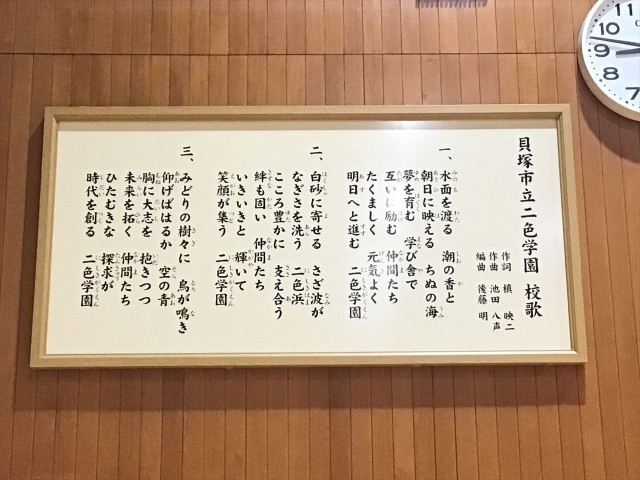 貝塚市立二色学園 校歌
作詞 槙 映二
作曲 池田 八声
編曲 後藤 明
一、水面を渡る 潮の香と
朝日に映える ちぬの海
夢を育む 学び舎で
互いに励む 仲間たち
たくましく 元気よく
明日へと進む 二色学園
二、白砂に寄せる さざ波が
なぎさを洗う 二色浜
こころ豊かに 支え合う
絆も固い 仲間たち
いきいきと 輝いて
笑顔が集う 二色学園
三、みどりの樹々に 鳥が鳴き
仰げばはるか 空の青
胸に大志を 抱きつつ
未来を拓く 仲間たち
ひたむきな 探求が
時代を創る 二色学園
10
9
8
7